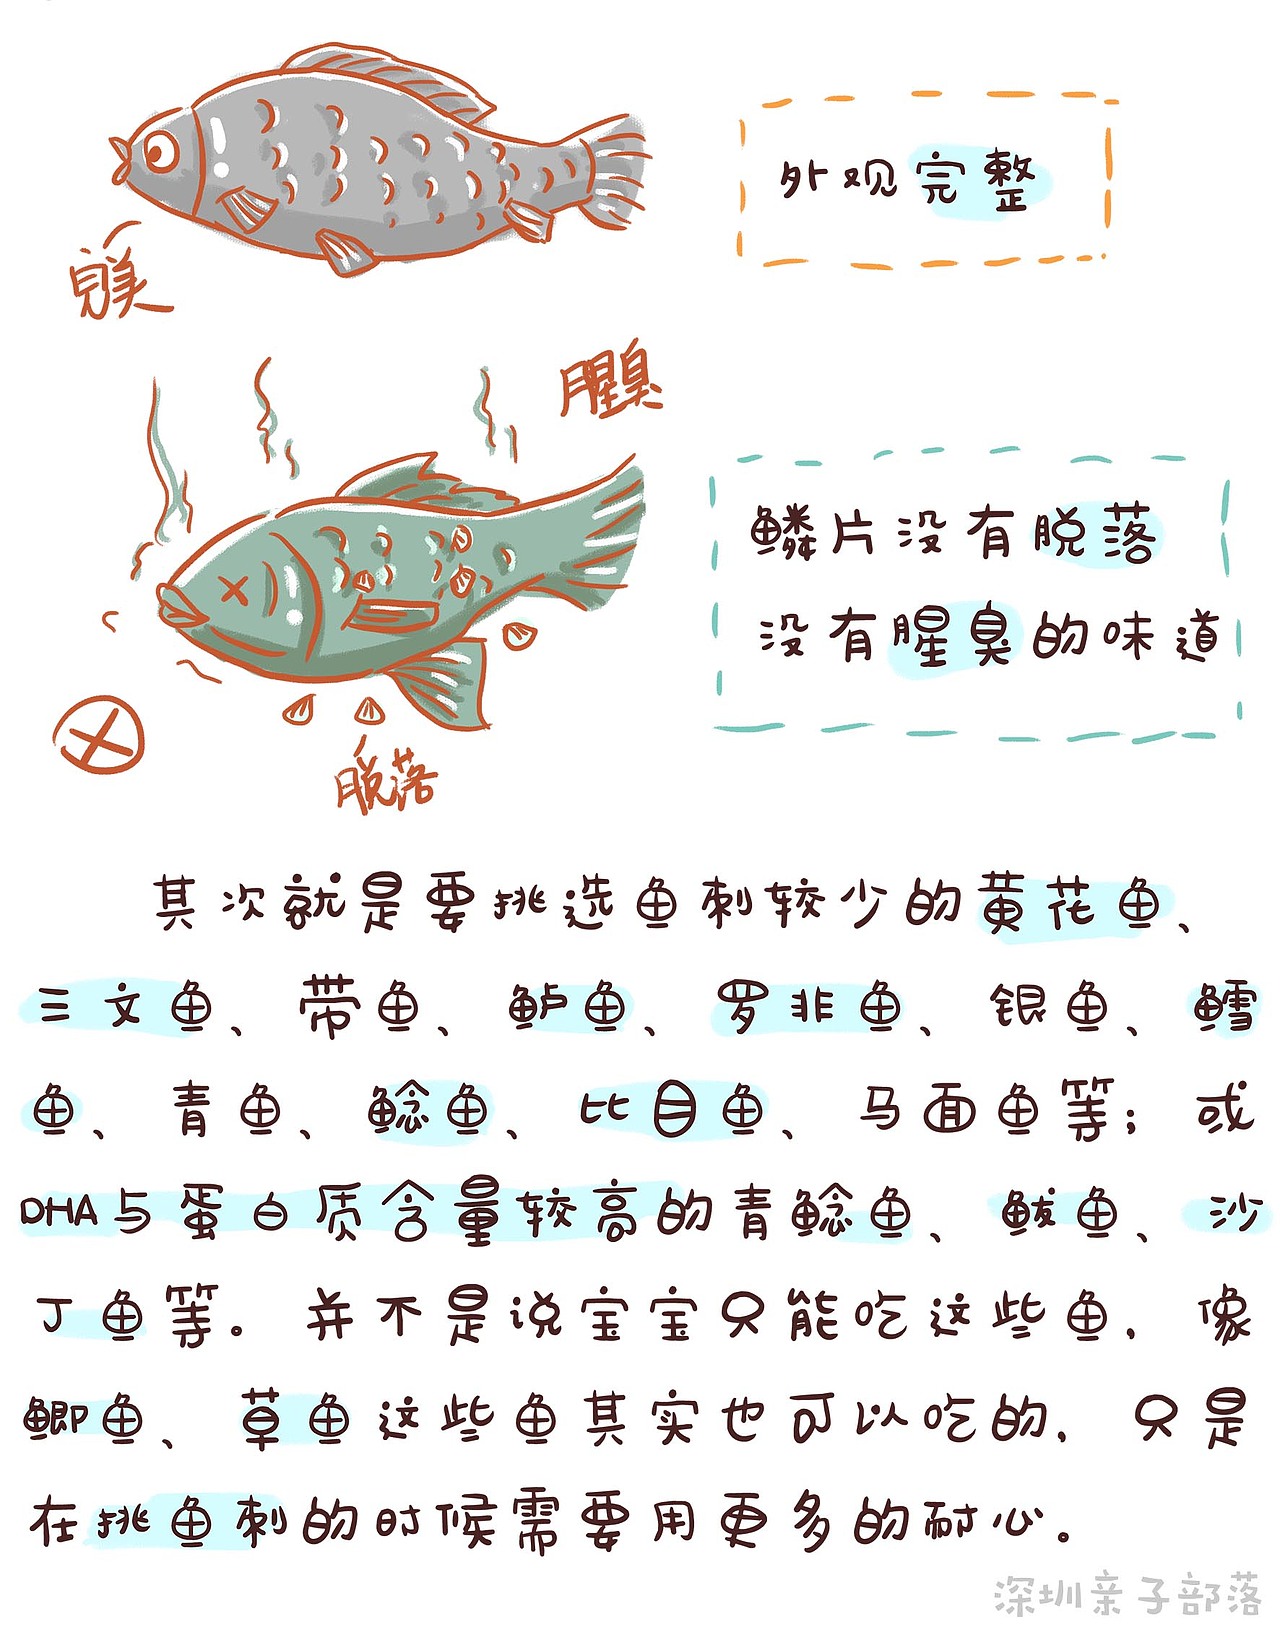 外观完整
完美
腥臭
鳞片没有脱落
没有腥臭的味道
脱落
其次就是要挑选鱼刺较少的黄花鱼、
三文鱼、带鱼、鲈鱼、罗非鱼、银鱼、鳕
鱼、青鱼、鲶鱼、比目鱼、马面鱼等；或
DHA与蛋白质含量较高的青鲶鱼、鲅鱼、沙
丁鱼等。并不是说宝宝只能吃这些鱼，像
鲫鱼、草鱼这些鱼其实也可以吃的，只是
在挑鱼刺的时候需要用更多的耐心。
深圳亲子部落